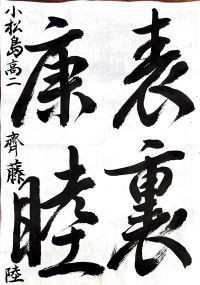 表裏
康睦
小松島高二 齊藤 陸